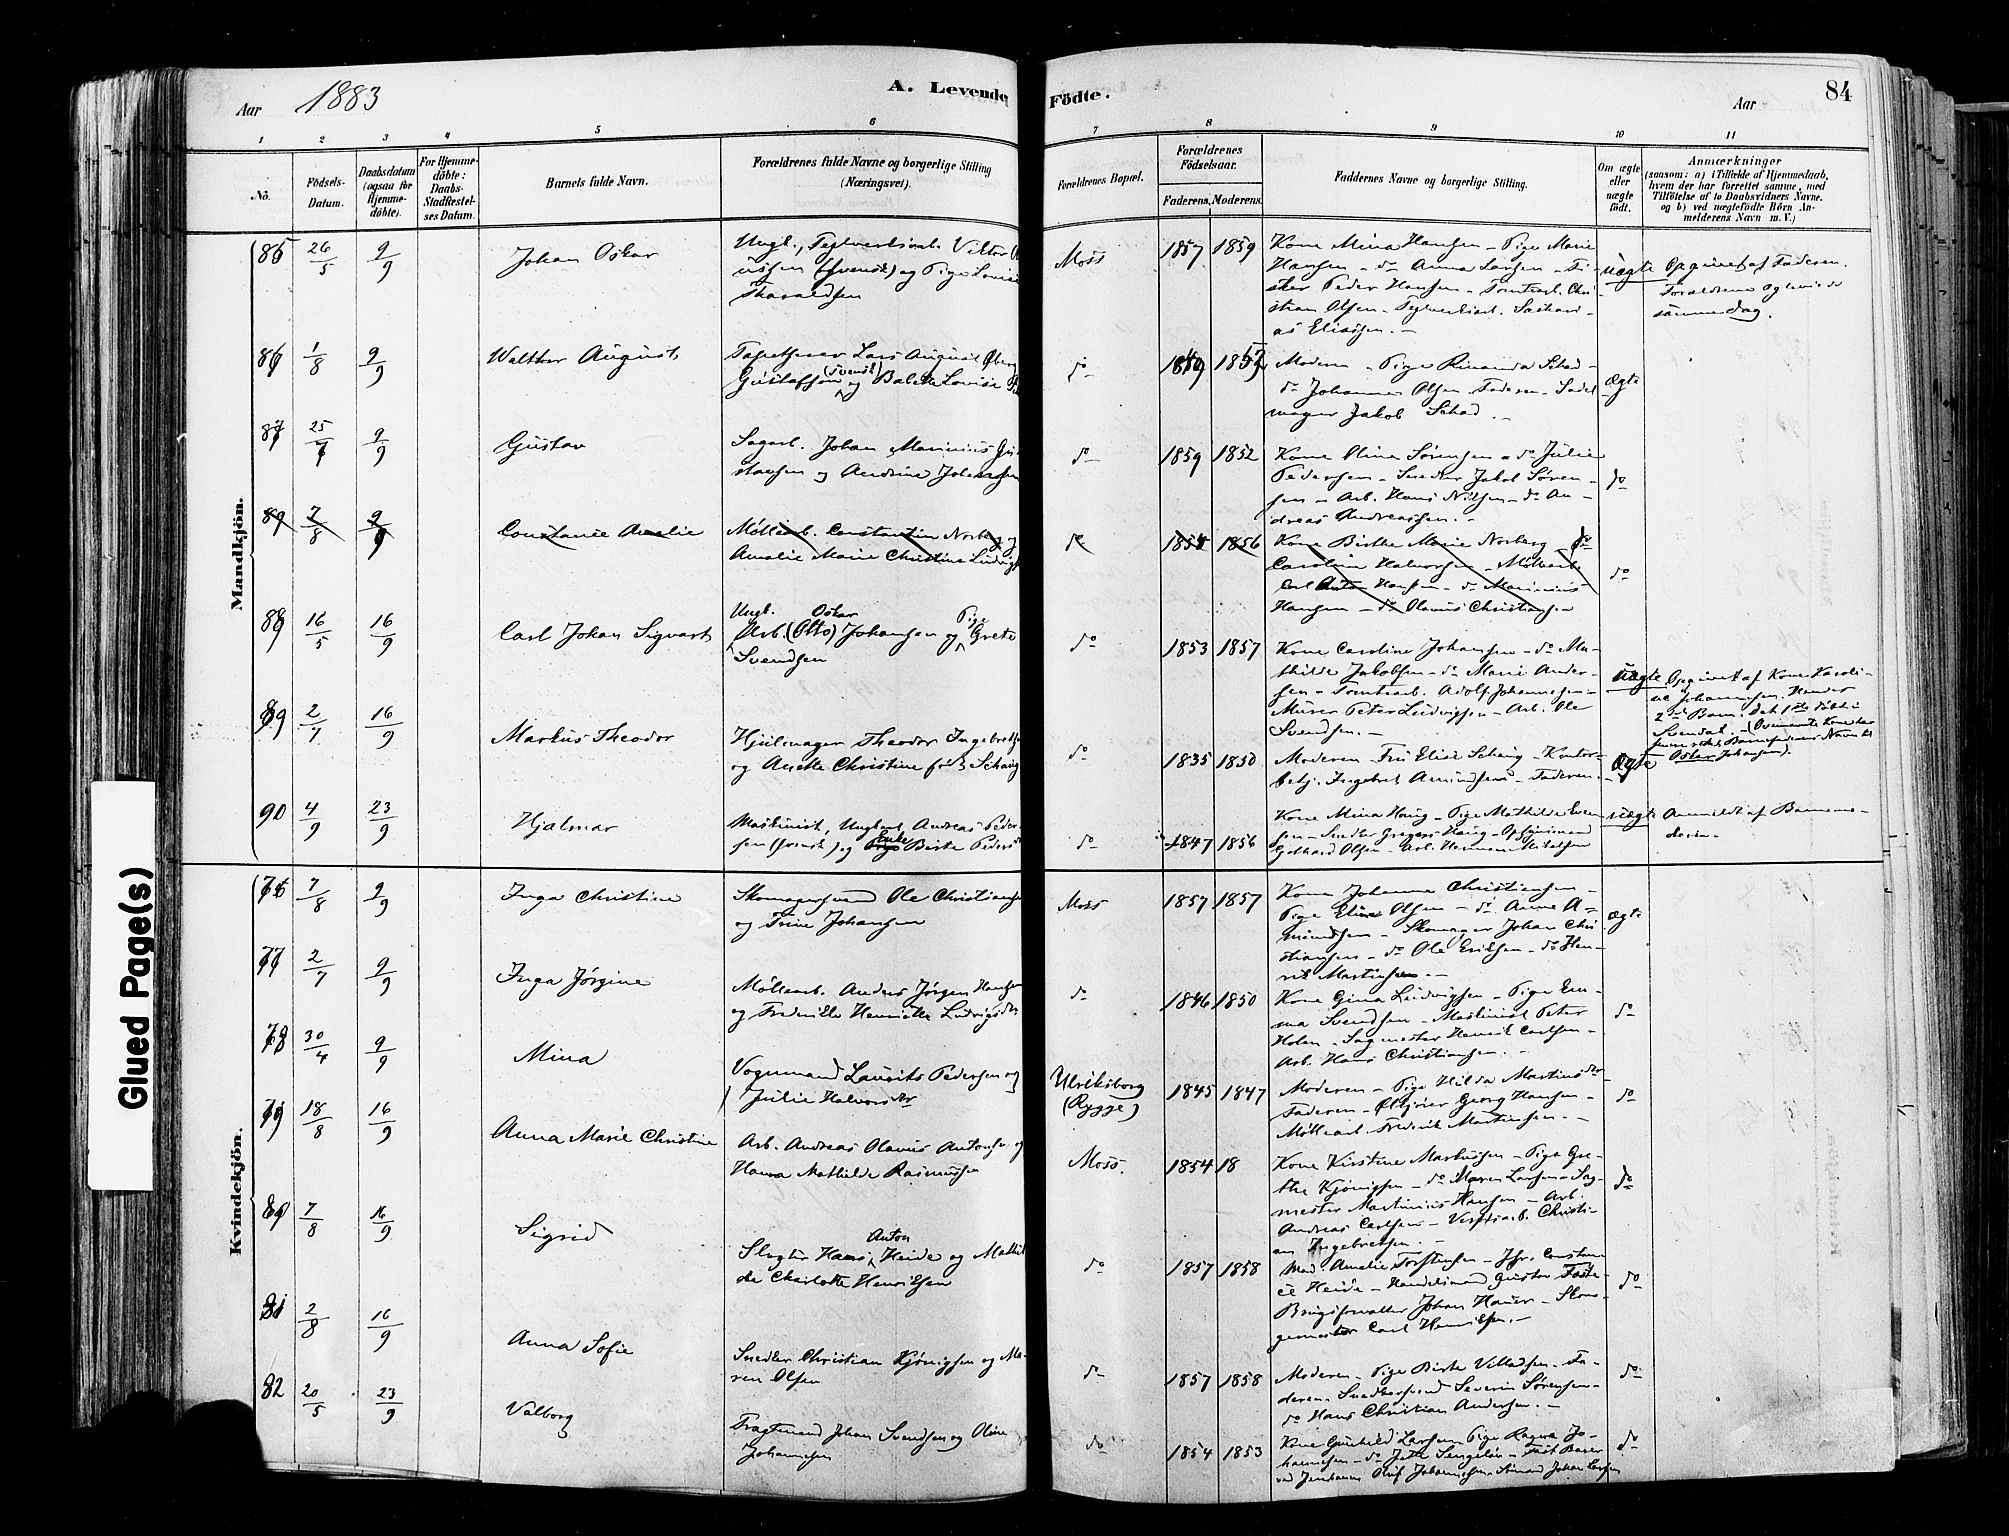 Aar 1883
A. Levende Födte.
Aar
84
1 2 3 4 5 6 7 8 9 10 11
No.
Födsels-
Datum.
Daabsdatum
(ogsaa for
Hjemme-
döbte).
For Hjemme-
döbte:
Daabs-
Stadfæstel-
ses Datum.
Barnets fulde Navn.
Forældrenes fulde Navne og borgerlige Stilling
(Næringsvei).
Forældrenes Bopæl.
Forældrenes
Födselsaar.
Faderens. Moderens.
Faddernes Navne og borgerlige Stilling.
Om ægte
eller
uægte
født.
Anmærkninger
(saasom: a) i Tilfælde af Hjemmedaab,
hvem der har forrettet samme, med
Tilföielse af to Daabsvidners Navne,
og b) ved uægtefödte Börn An-
melderens Navn m. V.)
Mandkjön.
85 26/5 9/9 Johan Oskar
Ungk., Teglverksarb. Viktor
(svensk) og Pige Louise
Tharaldsen
Moss 1857 1859
Kone Mina Hansen - Pige Marie
Hansen - do Anna Larsen - Fi-
sker Peder Hansen - Tomtearb. Chri-
stian Olsen - Teglverksarb. Sachari-
as Eliassen. -
uægte
Opgivet af Faderen.
Forældrene
samme dag.
86 1/8 9/9 Walther August
Tapetserer Lars August Öberg
Gustafsson (svensk) og Louise
do
Moderen - Pige Schad -
do Johanne Olsen - Faderen - Sadel-
mager Jakob Schad. -
Ægte
87 25/7 9/9 Gustav
Sagarb. Johan Marinius Gu-
stavsen og Andrine Johansen
do 1859 1852
Kone Oline Sørensen - do Julie
Pedersen - Snedker Jakob Søren-
sen - Arb. Hans Nilsen - do An-
dreas Andreassen. -
do
7/8 9/9 Constance Amelie
Møllearb. Constantin Norberg og
Amalie Marie Christine
1856
Kone Birthe Marie Norberg - do
Caroline Halvorsen - Møllearb.
Carl Anton Hansen - do Marinius
Hansen - do Olavus Christiansen
do
88 16/5 16/9 Carl Johan Sigvart
Ungk. Oskar Pige
Arb. (Otto) Johansen og Grete
Svendsen
do 1853 1857
Kone Caroline Johansen - do Ma-
thilde Jakobsen - do Marie Ander-
sen - Tomtearb. Adolf Johannesen -
Murer Peter Ludvigsen - Arb. Ole
Svendsen. -
uægte
Opgivet af Kone Karoli-
ne Johannesen. Hendes
2det Barn. det 1ste døbt i
Svendal. (Ovennævnte Kone har
Barnefaderens Navn til
Oskar Johansen).
89 2/7 16/9 Markus Theodor
Hjulmager Theodor Ingebretsen
og Anette Christine født Schaug
do 1835 1850
Moderen - Fru Elise Schaug - Kontor-
betj. Ingebret Amundsen - Faderen.
Ægte
90 4/9 23/9 Hjalmar
Maskinist, Ungkarl Andreas Peder-
sen (svensk) og Enke Birte
do 1847 1856
Kone Mina Haug - Pige Mathilde
- Snedker Gregers Haug - Opsynsmand
Gothard Olsen - Arb. Herman Mikalsen
uægte
Anmeldt af Barnemo-
deren.
Kvindekjön.
76 7/8 9/9 Inga Christine
Skomagersvend Ole Christiansen
og Trine Johansen
Moss 1857 1857
Kone Johanna Christiansen -
Pige Eline Olsen - do Anne A-
mundsen - Skomager Johan Chri-
stiansen - do Ole Eriksen - do Hen-
rik Martinsen. -
Ægte
77 2/7 9/9 Inga Jørgine
Møllearb. Anders Jørgen Hansen
og Fredrikke Henrikke Ludvigsdr
do 1846 1850
Kone Gina Ludvigsen - Pige Em-
ma Svendsen - Maskinist Peter
Holen - Sagmester Henrik Carlsen -
Arb. Hans Christiansen. -
do
78 30/4 9/9 Mina
Vognmand Laurits Pedersen og
Julie Halvorsdr
Ulriksborg
(Rygge)
1845 1847
Moderen - Pige Hilda Martinsdr -
Faderen - Georg Hansen -
Møllearb. Fredrik Martinsen. -
do
79 18/8 16/9 Anna Marie Christine
Arb. Andreas Olavus Antonsen og
Hanna Mathilde Rasmussen
Moss. 1854 18
Kone Kirstine Markussen - Pige Gre-
the Kjønigsen - do Maren Larsen - Sag-
mester Martinius Hansen - Arb.
Andreas Carlsen - Verftsarb. Christi-
an Ingebretsen. -
do
80 7/8 16/9 Sigrid
Anton
Slagter Hans Heide og Mathil-
de Charlotte Henriksen
do 1857 1858
Mad. Amalie Torstensen - Jfr. Constan-
ce Heide - Handelsmand Gustav
Brugsforvalter Johan Hauer - Slom-
Carl Henriksen. -
do
81 2/8 16/9 Anna Sofie
Snedker Christian Kjønigsen og Ma-
ren Olsen
do 1857 1858
Moderen - Pige Birthe Villadsen - Fa-
deren - Snedkersvend Severin Sørensen -
do Hans Christian Andersen. -
do
82 20/5 23/9 Valborg
Fragtemand Johan Svendsen og Oline
Johannesen
do 1854 1853
Kone Gunhild Larsen - Pige Ragna Jo-
hannesen - do Jette - Fast
ved Jernbanen Oluf Johannesen - Sömand Johan Larsen
do
Glued Page(s)